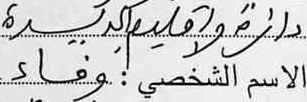 دائرة واقليم الدريسدة
الاسم الشخصي : وفاء